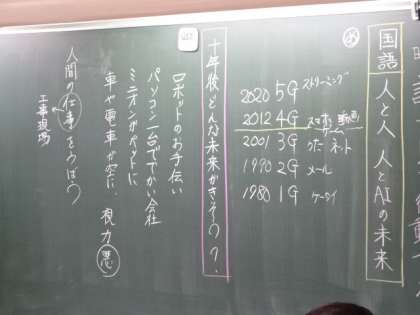 国語 人と人 人とAIの未来
2020 5G ストリーミング
2012 4G スマホ 動画
ゲーム
2001 3G ネット
1990 2G メール
1980 1G ケータイ
十年後どんな未来がきそう?
ロボットのお手伝い
パソコン一台ででかい会社
ミニオンがペットに
車や電車が空に、視力 悪
人間の仕事をうばう
工事現場